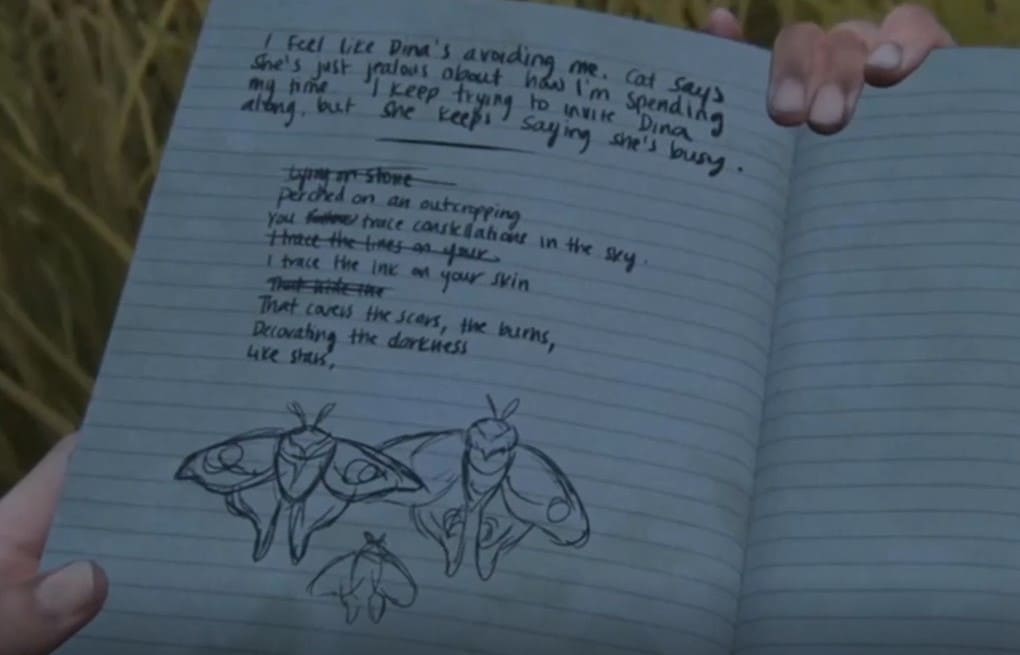 I feel like Dina's avoiding me. Cat says
she's just jealous about how I'm spending
my time. I keep trying to invite Dina
along, but she keeps saying she's busy.
Lying on stone
perched on an outcropping
you trace constellations in the sky.
I trace the lines on your
I trace the ink on your skin
That hide the
That covers the scars, the burns,
Decorating the darkness
like stars,